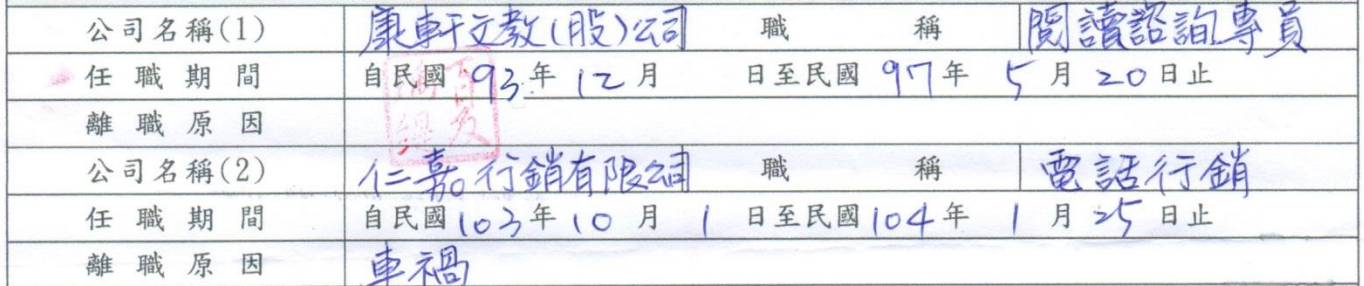 公司名稱(1) 康軒文教(股)公司 職稱 閱讀諮詢專員
任職期間 自民國93年12月 日至民國97年5月20日止
離職原因
公司名稱(2) 仁嘉行銷有限公司 職稱 電話行銷
任職期間 自民國103年10月1日至民國104年1月25日止
離職原因 車禍